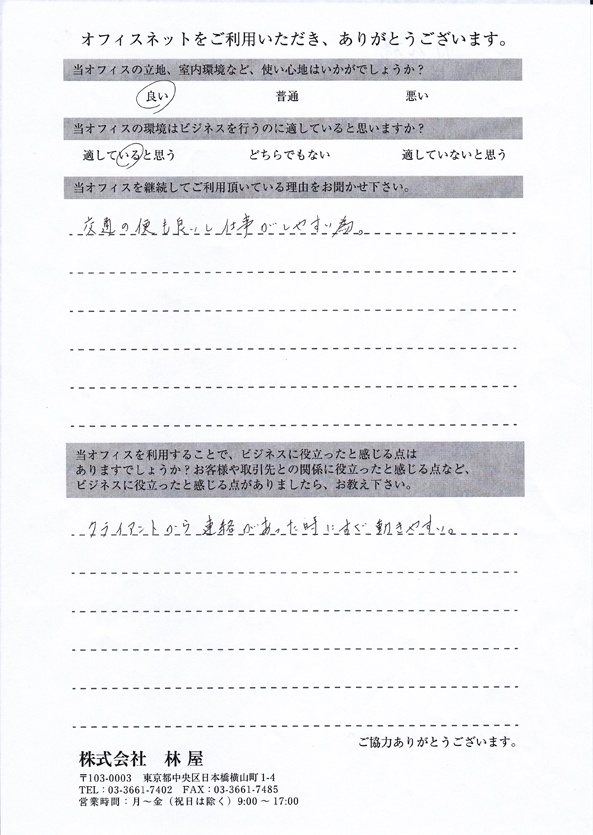 オフィスネットをご利用いただき、ありがとうございます。
当オフィスの立地、室内環境など、使い心地はいかがでしょうか？
良い 普通 悪い
当オフィスの環境はビジネスを行うのに適していると思いますか？
適していると思う どちらでもない 適していないと思う
当オフィスを継続してご利用頂いている理由をお聞かせ下さい。
交通の便も良いし仕事がしやすい為。
当オフィスを利用することで、ビジネスに役立ったと感じる点は
ありますでしょうか？お客様や取引先との関係に役立ったと感じる点など、
ビジネスに役立ったと感じる点がありましたら、お教え下さい。
クライアントから連絡があった時にすぐ動きやすい。
ご協力ありがとうございます。
株式会社 林屋
〒103-0003 東京都中央区日本橋横山町1-4
TEL：03-3661-7402 FAX：03-3661-7485
営業時間：月〜金（祝日は除く）9:00〜17:00